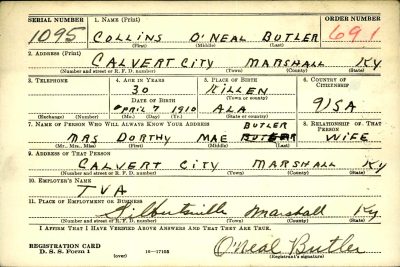 SERIAL NUMBER 1. NAME (Print) ORDER NUMBER
1095 COLLINS O'NEAL BUTLER 691
(First) (Middle) (Last)
2. ADDRESS (Print)
CALVERT CITY MARSHALL KY
(Number and street or R. F. D. number) (Town) (County) (State)
3. TELEPHONE 4. AGE IN YEARS 5. PLACE OF BIRTH 6. COUNTRY OF CITIZENSHIP
30 KILLEN
DATE OF BIRTH (Town or county)
APRIL 7 1910 ALA USA
(Exchange) (Number) (Mo.) (Day) (Yr.) (State or country)
7. NAME OF PERSON WHO WILL ALWAYS KNOW YOUR ADDRESS BUTLER 8. RELATIONSHIP OF THAT PERSON
MRS DORTHY MAE WIFE
(Mr., Mrs., Miss) (First) (Middle) (Last)
9. ADDRESS OF THAT PERSON
CALVERT CITY MARSHALL KY
(Number and street or R. F. D. number) (Town) (County) (State)
10. EMPLOYER'S NAME
TVA
11. PLACE OF EMPLOYMENT OR BUSINESS
Gilbertsville Marshall Ky
(Number and street or R. F. D. number) (Town) (County) (State)
I AFFIRM THAT I HAVE VERIFIED ABOVE ANSWERS AND THAT THEY ARE TRUE.
REGISTRATION CARD
D. S. S. Form 1 (over) 16—17105 O'Neal Butler
(Registrant's signature)